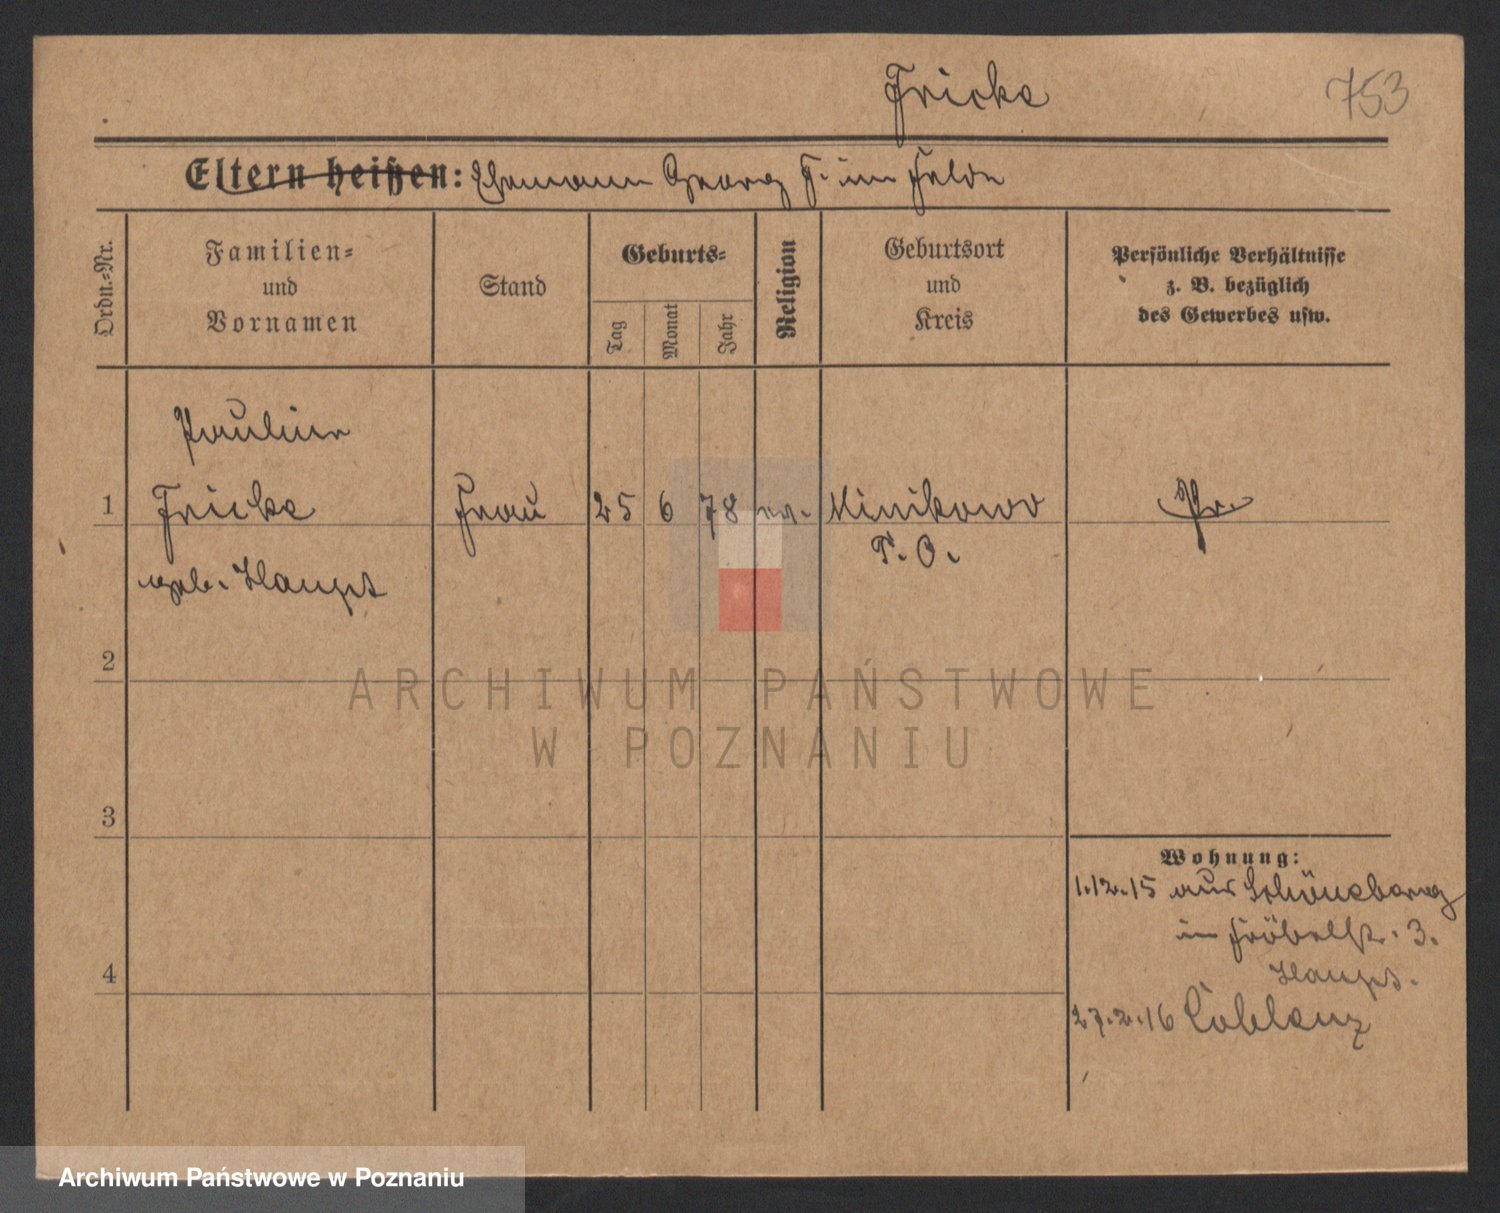 Fricke
753
Eltern heißen: Ehemann Georg F. im Felde
Ordn.-Nr.
Familien-
und
Vornamen
Stand
Geburts-
Tag
Monat
Jahr
Religion
Geburtsort
und
Kreis
Persönliche Verhältnisse
z. B. bezüglich
des Gewerbes usw.
Pauline
1 Fricke Frau 25 6 78 ev. Minikowo Pr.
P. O.
geb. Haupt
2
ARCHIWUM PAŃSTWOWE
W POZNANIU
3
Wohnung:
1.12.15 aus Schöneberg
in Fröbelstr. 3.
Haupt.
4
27.2.16 Coblenz
Archiwum Państwowe w Poznaniu